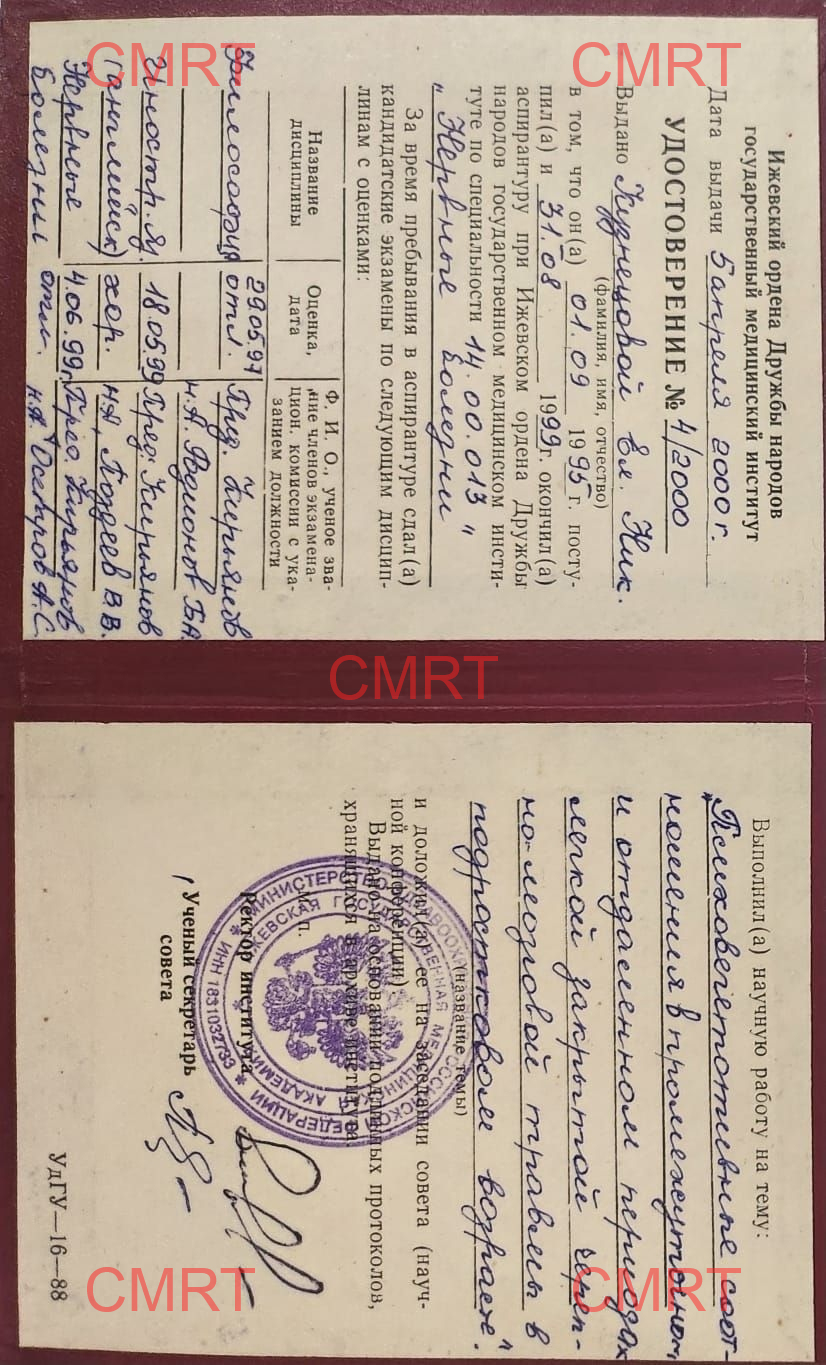 Ижевский ордена Дружбы народов
государственный медицинский институт
Дата выдачи 5 апреля 2000 г.
УДОСТОВЕРЕНИЕ № 4/2000
Выдано Кузнецовой Ел. Ник.
(фамилия, имя, отчество)
в том, что он(а) 01.09 1995 г. посту-
пил(а) и 31.08 1999 г. окончил(а)
аспирантуру при Ижевском ордена Дружбы
народов государственном медицинском инсти-
туте по специальности 14.00.013 "
„ Нервные болезни
За время пребывания в аспирантуре сдал(а)
кандидатские экзамены по следующим дисцип-
линам с оценками:
Название дисциплины
Оценка, дата
Ф. И. О., ученое зва-
ние членов экзамена-
цион. комиссии с ука-
занием должности
Философия 29.05.97 отл. Пред. Кирьянов
н.А. Родионов Б.А.
Иностр. яз. 18.05.99 Пред. Кирьянов
(английск) хор. н.А, Поздеев В.В.
Нервные 4.06.99г. Пред. Кирьянов
болезни отл. н.А. Осетров А.С.
Выполнил(а) научную работу на тему:
„Психовегетативные соот-
ношения в промежуточном
и отдаленном периодах
легкой закрытой череп-
но-мозговой травмы в
подростковом возрасте"
(название темы)
и доложил(а) ее на заседании совета (науч-
ной конференции)
Выдано на основании подлинных протоколов,
хранящихся в архиве института
М. п.
Ректор института
Ученый секретарь
совета
УдГУ—16—88
МИНИСТЕРСТВО ЗДРАВООХРАНЕНИЯ РОССИЙСКОЙ ФЕДЕРАЦИИ
ИЖЕВСКАЯ ГОСУДАРСТВЕННАЯ МЕДИЦИНСКАЯ АКАДЕМИЯ
ИНН 1831032733
CMRT
CMRT
CMRT
CMRT
CMRT